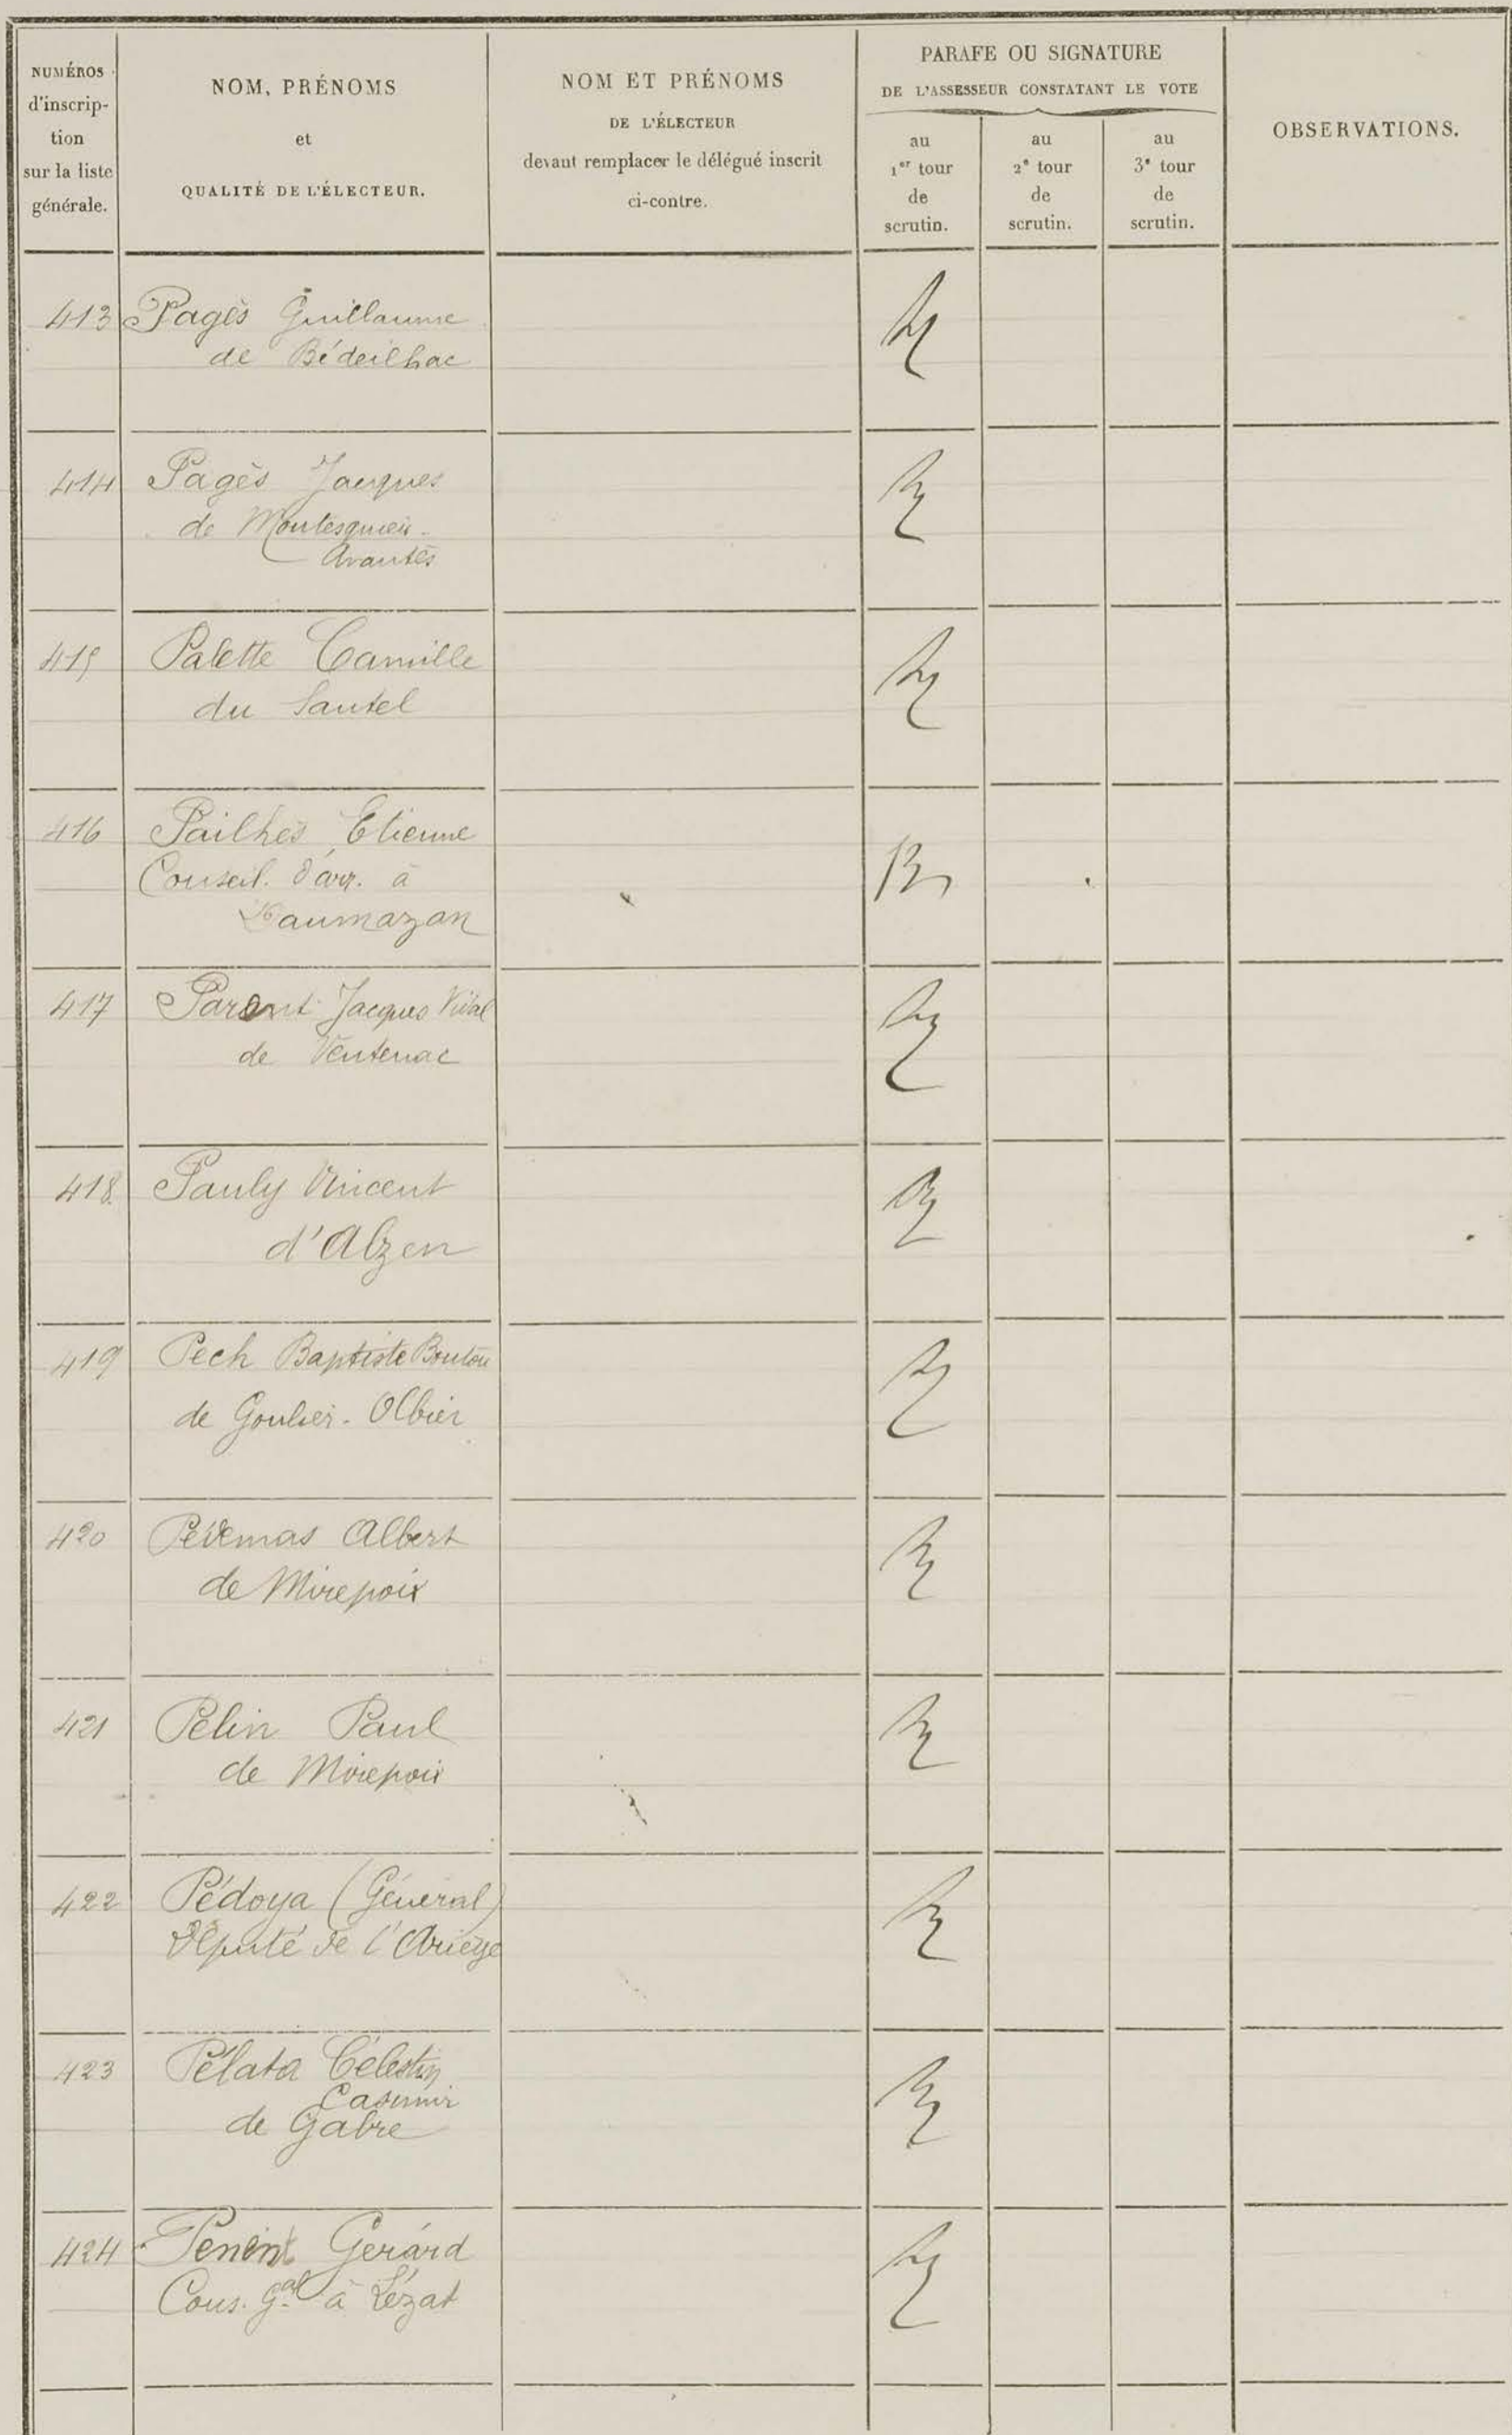 NUMÉROS
d'inscrip-
tion
sur la liste
générale.
NOM, PRÉNOMS
et
QUALITÉ DE L'ÉLECTEUR.
NOM ET PRÉNOMS
DE L'ÉLECTEUR
devant remplacer le délégué inscrit
ci-contre.
PARAFE OU SIGNATURE
DE L'ASSESSEUR CONSTATANT LE VOTE
au
1er tour
de
scrutin.
au
2e tour
de
scrutin.
au
3e tour
de
scrutin.
OBSERVATIONS.
413 Pagès Guillaume
de Bédeilhac
414 Pagès Jacques
de Montesquieu-
Avantès
415 Palette Camille
du Sautel
416 Pailhès Etienne
Conseil. d'arr. à
Daumazan
417 Parent Jacques Vidal
de Ventenac
418 Pauly Vincent
d'Alzen
419 Pech Baptiste
de Goulier-Olbier
420 Albert
de Mirepoix
421 Pelin Paul
de Mirepoix
422 Pédoya (Général)
Député de l'Ariège
423 Pélata Célestin
Casimir
de Gabre
424 Penent Gerard
Cons. Gal à Lézat